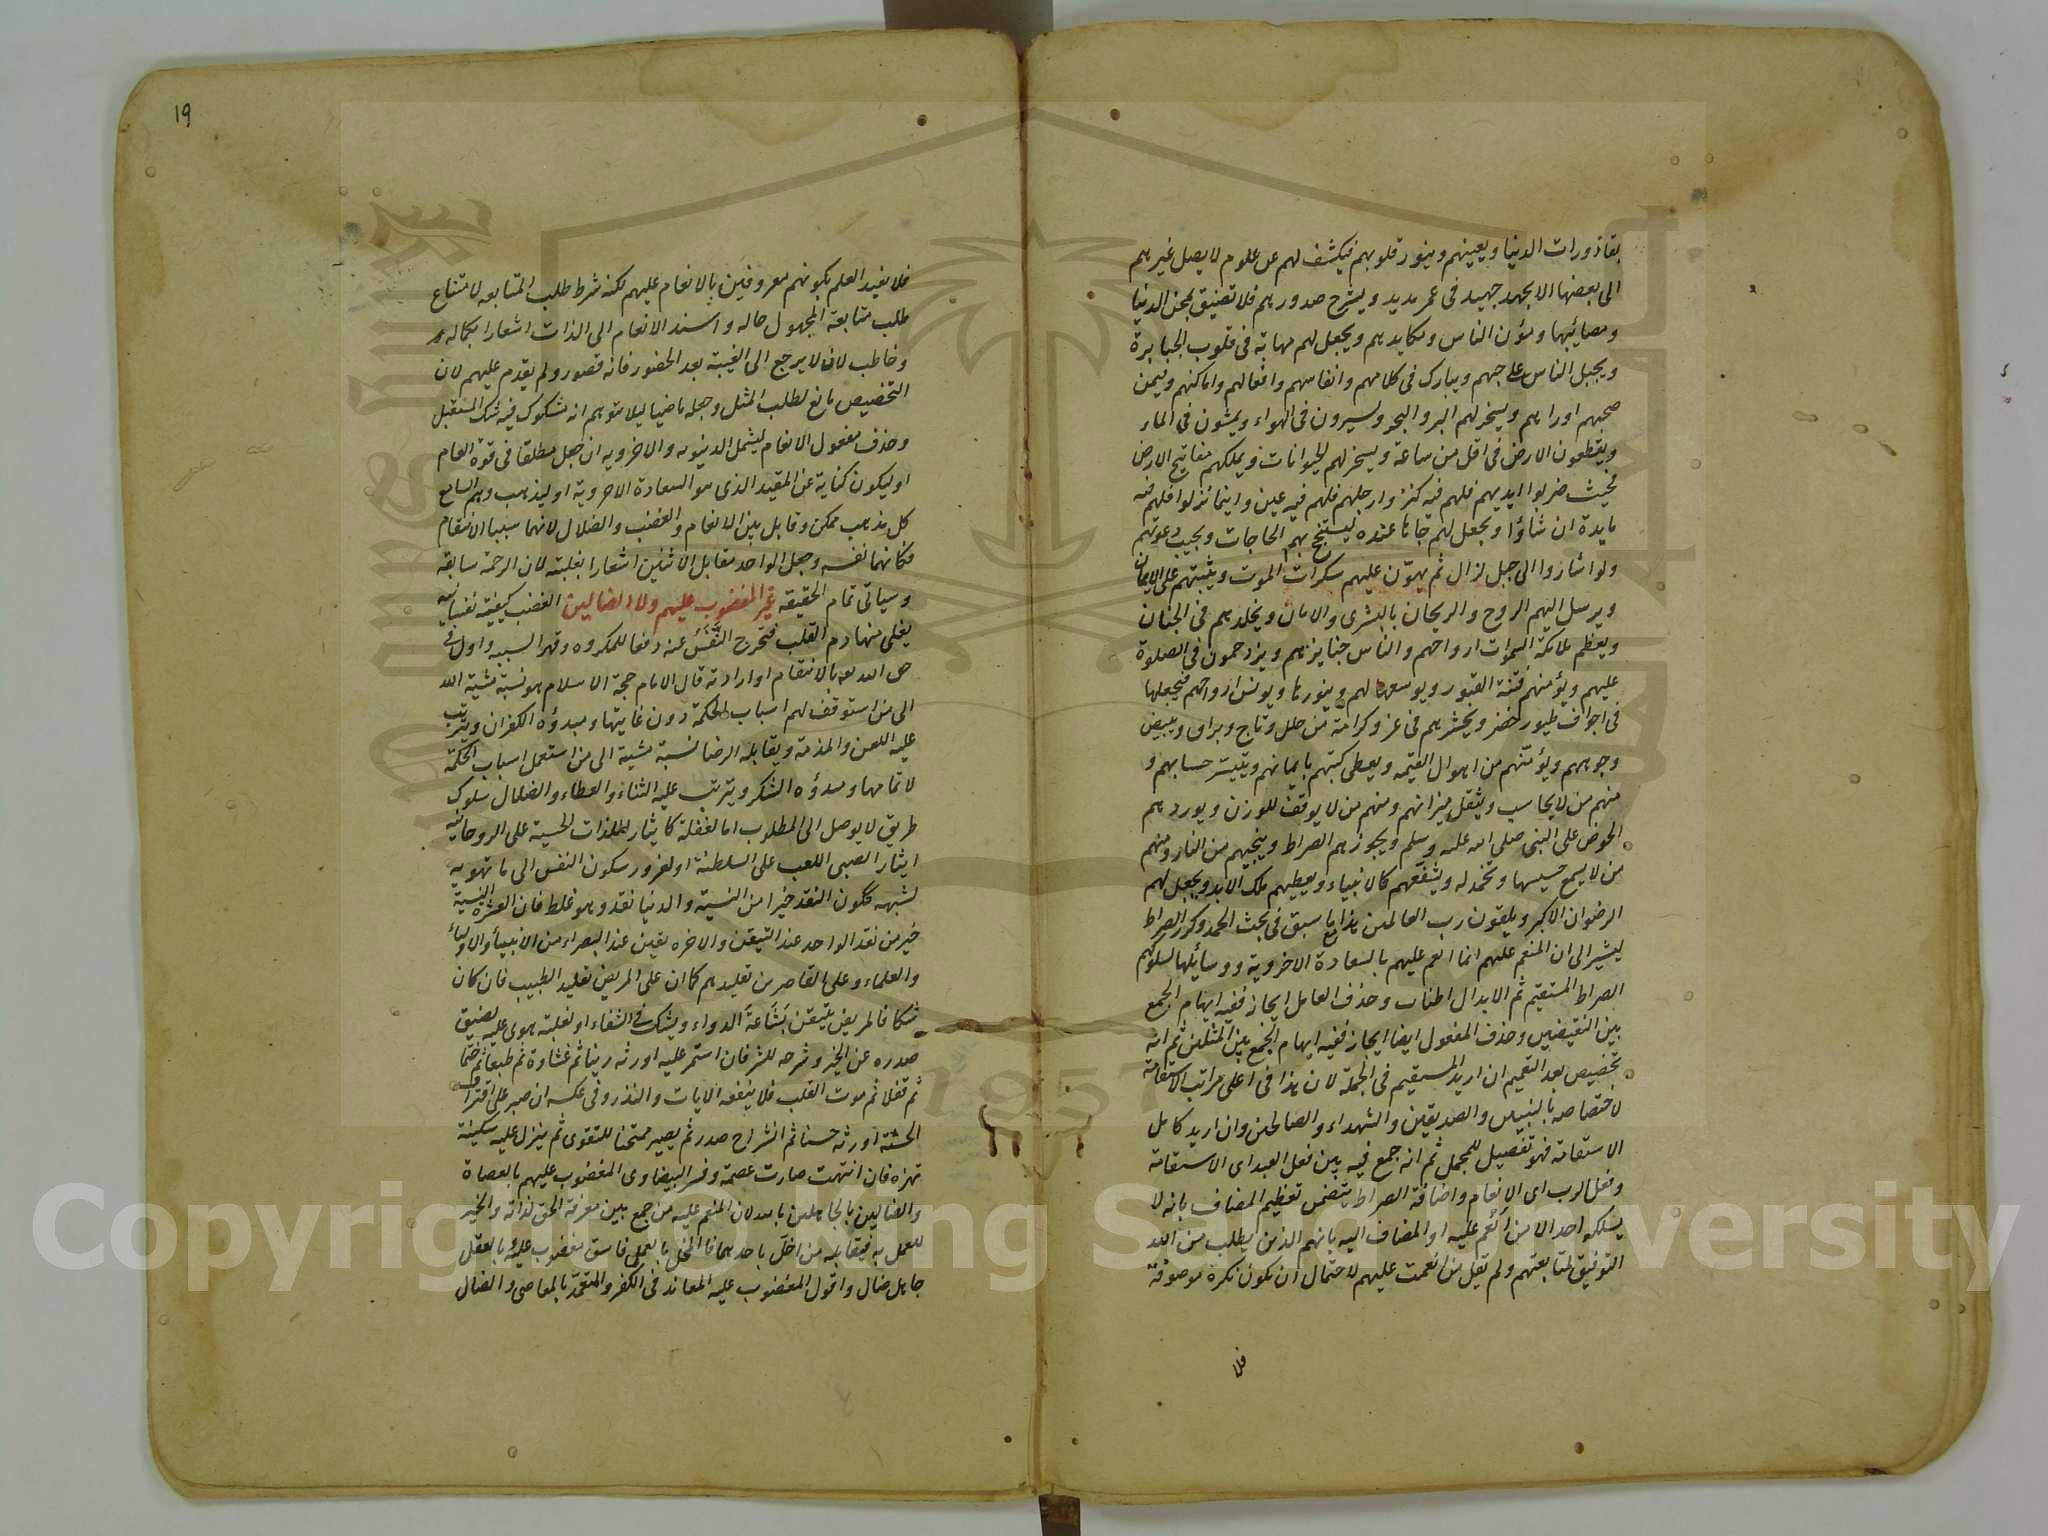 بقاذورات الدنيا ويعينهم وينور قلوبهم فيكشف لهم عن علوم لا يصل غيرهم
الى بعضها الا بجهد جهيد في عمر مديد ويشرح صدورهم فلا تضيق بمحن الدنيا
ومصائبها ومؤن الناس ومكايدهم ويجعل لهم مهابة في قلوب الجبابرة
ويجبل الناس على حبهم ويبارك في كلامهم وانفاسهم وافعالهم واماكنهم وفيمن
صحبهم اورآهم ويسخر لهم البر والبحر ويسيرون في الهواء ويمشون في الماء
ويقطعون الارض في اقل من ساعة ويسخر لهم الحيوانات ويملكهم مفاتيح الارض
فحيث ضربوا ايديهم فلهم فيه كنز وارجلهم فلهم فيه عين واينما نزلوا فلهم فيه
مايدة ان شاؤا ويجعل لهم جاها عنده ليستنجح بهم الحاجات ويجيب دعوتهم
ولو اشاروا الى جبل لزال ثم يهوّن عليهم سكرات الموت ويثبتهم على الايمان
ويرسل اليهم الروح والريحان بالبشرى والامان ويخلدهم في الجنان
ويعظم ملائكة السموات ارواحهم والناس جنايزهم ويزدحمون في الصلوة
عليهم ويؤمنهم فتنة القبور ويوسعها لهم وينورها ويونس ارواحهم فيجعلها
في اجواف طيور خضر ويحشرهم في عز وكرامة من حلل وتاج وبراق ويبيض
وجوههم ويؤمنهم من اهوال القيمة ويعطى كتبهم بايمانهم وييسر حسابهم و
منهم من لا يحاسب ويثقل ميزانهم ومنهم من لا يوقف للوزن ويوردهم
الحوض على النبي صلى الله عليه وسلم ويجوزهم الصراط وينجيهم من النار ومنهم
من لا يسمع حسيسها وتخمد له ويشفعهم كالانبياء ويعطيهم ملك الابد ويجعل لهم
الرضوان الاكبر ويلقون رب العالمين هذا ما سبق في بحث الحمد وكرر الصراط
ليشير الى ان المنعم عليهم انما انعم عليهم بالسعادة الاخروية ووسائلها لسلوكهم
الصراط المستقيم ثم الابدال اطناب وحذف العامل ايجاز ففيه ايهام الجمع
بين النقيضين وحذف المفعول ايضا ايجاز ففيه ايهام الجمع بين المثلين ثم انه
تخصيص بعد التعميم ان اريد المستقيم في الجملة لان هذا في اعلى مراتب الاستقامة
لاختصاصه بالنبيين والصديقين والشهداء والصالحين وان اريد كامل
الاستقامة فهو تفصيل للمجمل ثم انه جمع فيه بين فعل العبد اى الاستقامة
وفعل الرب اى الانعام واضافة الصراط يتضمن تعظيم المضاف بانه لا
يسلكه احد الا من أُنْعِم عليه او المضاف اليه بانهم الذين يطلب من الله
التوفيق لمتابعتهم ولم يقل من انعمت عليهم لاحتمال ان تكون نكرة موصوفة
فلا
١٩
فلا يفيد العلم بكونهم معروفين بالانعام عليهم لكنه شرط طلب المتابعه لامتناع
طلب متابعة المجهول حاله واسند الانعام الى الذات اشعارا بكماله
وخاطب لان لا يرجع الى الغيبة بعد الحضور فانه قصور ولم يقدم عليهم لان
التخصيص مانع لطلب المثل وجعله ماضيا ليلا يتوهم انه مشكوك فيه شك المستقبل
وحذف مفعول الانعام ليشمل الدينوية والاخروية ان جعل مطلقا في قوة العام
او ليكون كناية عن المقيد الذى هو السعادة الاخروية او ليذهب وهم السامع
كل مذهب ممكن وقابل بين الانعام والغضب والضلال لانهما سببا الانتقام
فكانهما نفسه وجعل الواحد مقابل الاثنين اشعارا بغلبته لان الرحمة سابقة
وسياتى تمام الحقيقه غير المغضوب عليهم ولا الضالين الغضب كيفية نفسانيه
يغلى منها دم القلب فتحرج النَّفْسُ عنه دفعا للمكروه وقهرا لسببه واول في
حق الله تعه بالانتقام او ارادته قال الامام حجة الاسلام هو نسبة مشية الله
الى من استوقف لهم اسباب الحكمة دون غايتها ومبدؤه الكفران ويترتب
عليه اللعن والمذمة ويقابله الرضا نسبة مشية الى من استعمل اسباب الحكمة
لاتمامها ومبدؤه الشكر ويترتب عليه الثناء والعطاء والضلال سلوك
طريق لا يوصل الى المطلوب اما لغفلة كايثار الملذات الحسية على الروحانيه
ايثار الصبى اللعب على السلطنة او لغرور سكون النفس الى ما تهويه
لشبهه ككون النقد خيرا من النسية والدنيا نقد وهو غلط فان العشرة النسية
خير من نقد الواحد عند التيقن والاخره يقين عند البصراء من الانبيأ والاوليأ
والعلماء وعلى القاصرين تقليدهم كما ان على المريض تقليد الطبيب فان كان
شكا فالمريض يتيقن بَشَاعَة الدواء ويشك في الشفاء او لغلبة هوى عليه يضيق
صدره عن الخير وشرحه للشر فان استمر عليه اورثه رينا ثم غشاوة ثم طبعا ثم ختما
ثم قفلا ثم موت القلب فلا ينفعه الايات والنذر وفي عكسه ان صبر على اقتراف
الحسنة اورثه حسنا ثم انشراح صدر ثم يصير ممتحنا للتقوى ثم ينزل عليه سكينة
تهزه فان انتهت صارت عصمة وفسر البيضاوى المغضوب عليهم بالعصاة
والضالين بالجاهلين بالله لان المنعم عليه من جمع بين معرفة الحق لذاته والخير
للعمل به فيقابله من اخلّ باحديهما فالمخل بالعمل فاسق مغضوب عليه وبالعقل
جاهل ضال واقول المغضوب عليه المعاند في الكفر والمتعمد بالمعاصى والضال